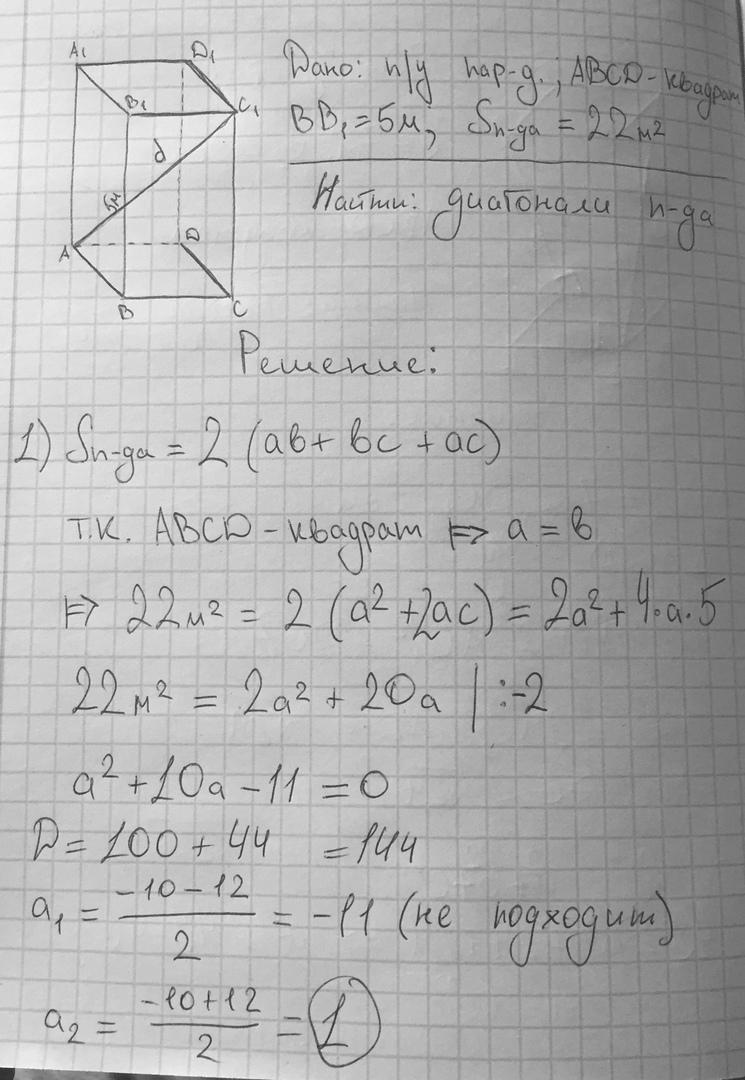 A₁ D₁
B₁ C₁
d
5м
A D
B C
Дано: п/у пар-д.; ABCD-квадрат
BB₁ = 5м; Sп-да = 22м²
Найти: диагонали п-да
Решение:
1) Sп-да = 2 (ab + bc + ac)
т.к. ABCD - квадрат ⊨> a = b
⊨> 22м² = 2 (a² + 2ac) = 2a² + 4·a·5
22м² = 2a² + 20a | :-2
a² + 10a - 11 = 0
D = 100 + 44 = 144
a₁ = (-10-12)/2 = -11 (не подходит)
a₂ = (-10+12)/2 = 1